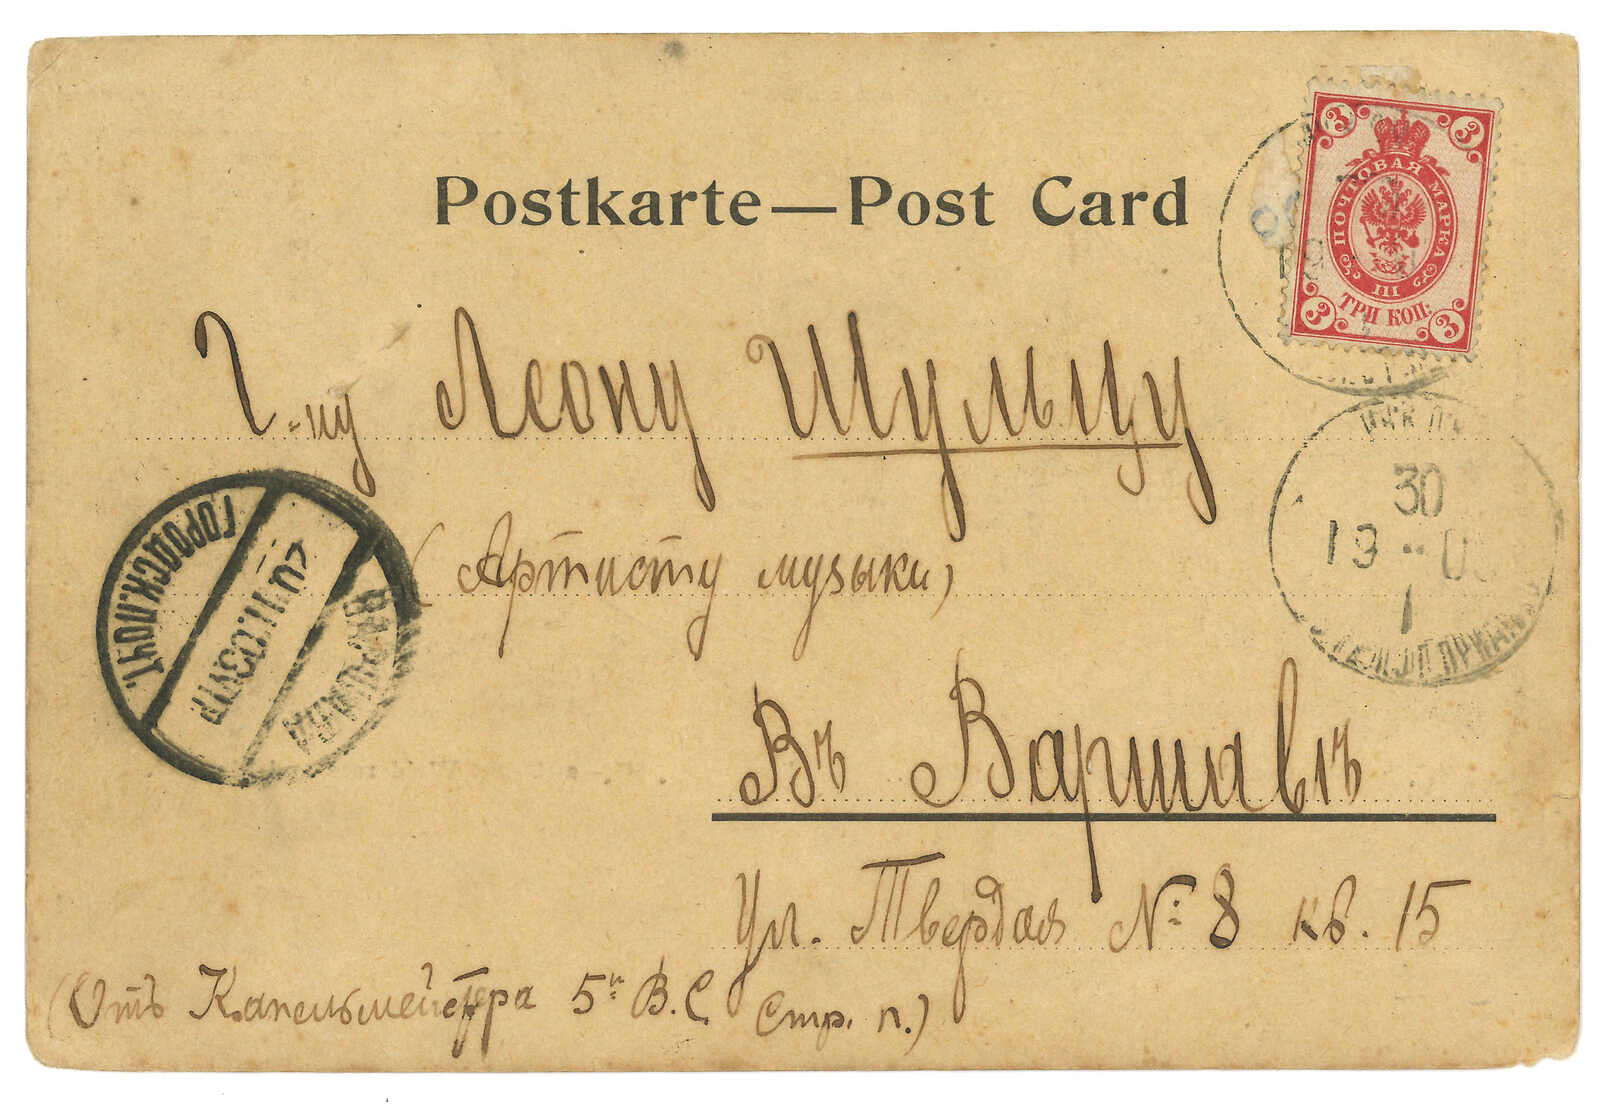 Postkarte — Post Card
3 3
ПОЧТОВАЯ МАРКА
III
ТРИ КОП.
3 3
Г-ну Леону Шульцу
(Артисту музыки)
30
19
1
ГОРОДСК.ПОЧТ.
ВАРШАВА
Въ Варшавѣ
Ул. Твердая №: 8 кв. 15
(Отъ Капельмейстера 5го В.С. Стр. п.)